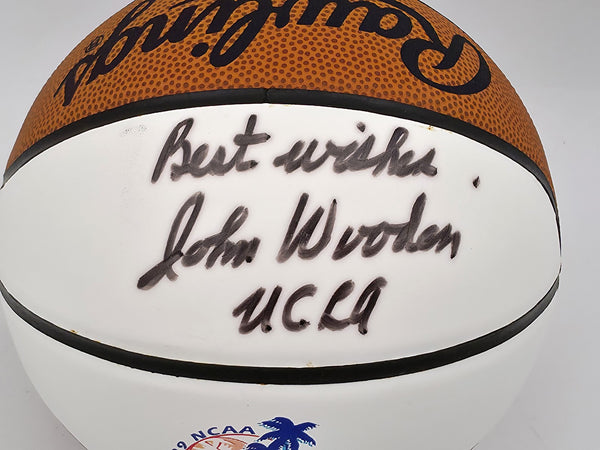 Rawlings
Best wishes.
John Wooden
UCLA
NCAA